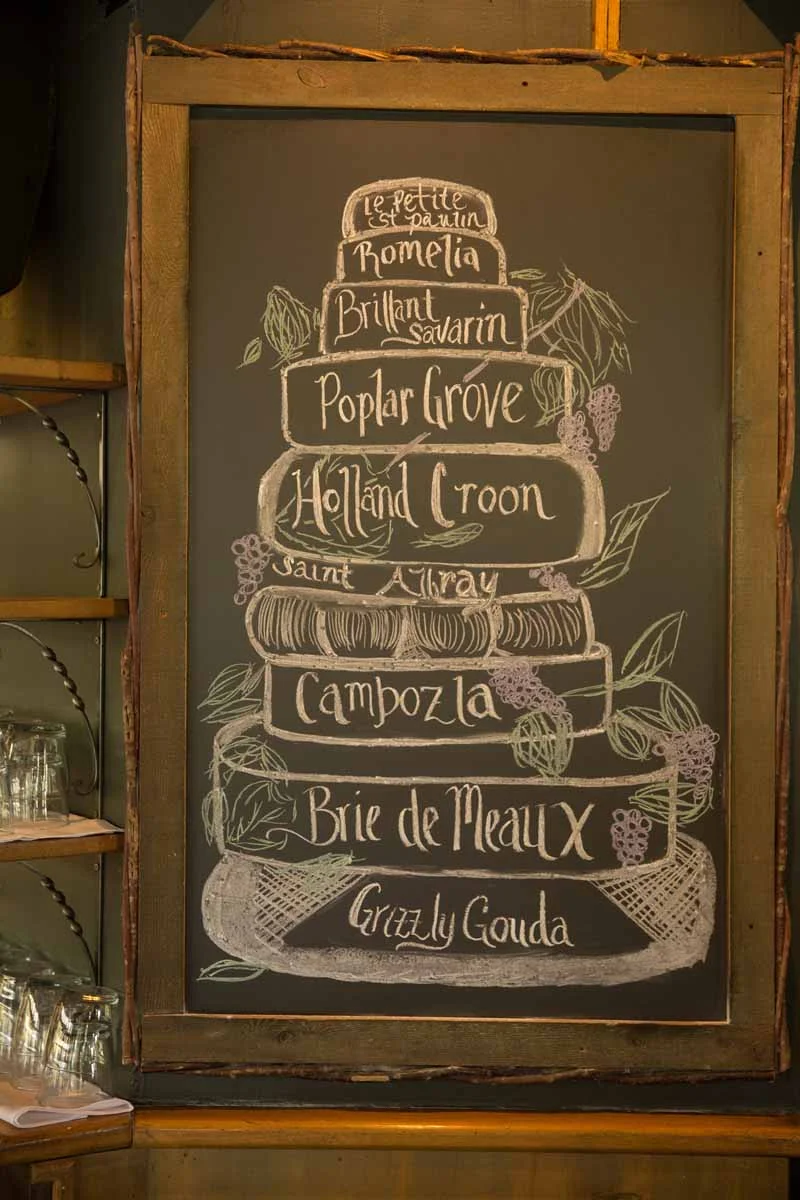 Le Petite
St paulin
Romelia
Brillant
Savarin
Poplar Grove
Holland Croon
Saint Albray
Cambozla
Brie de Meaux
Grizzly Gouda